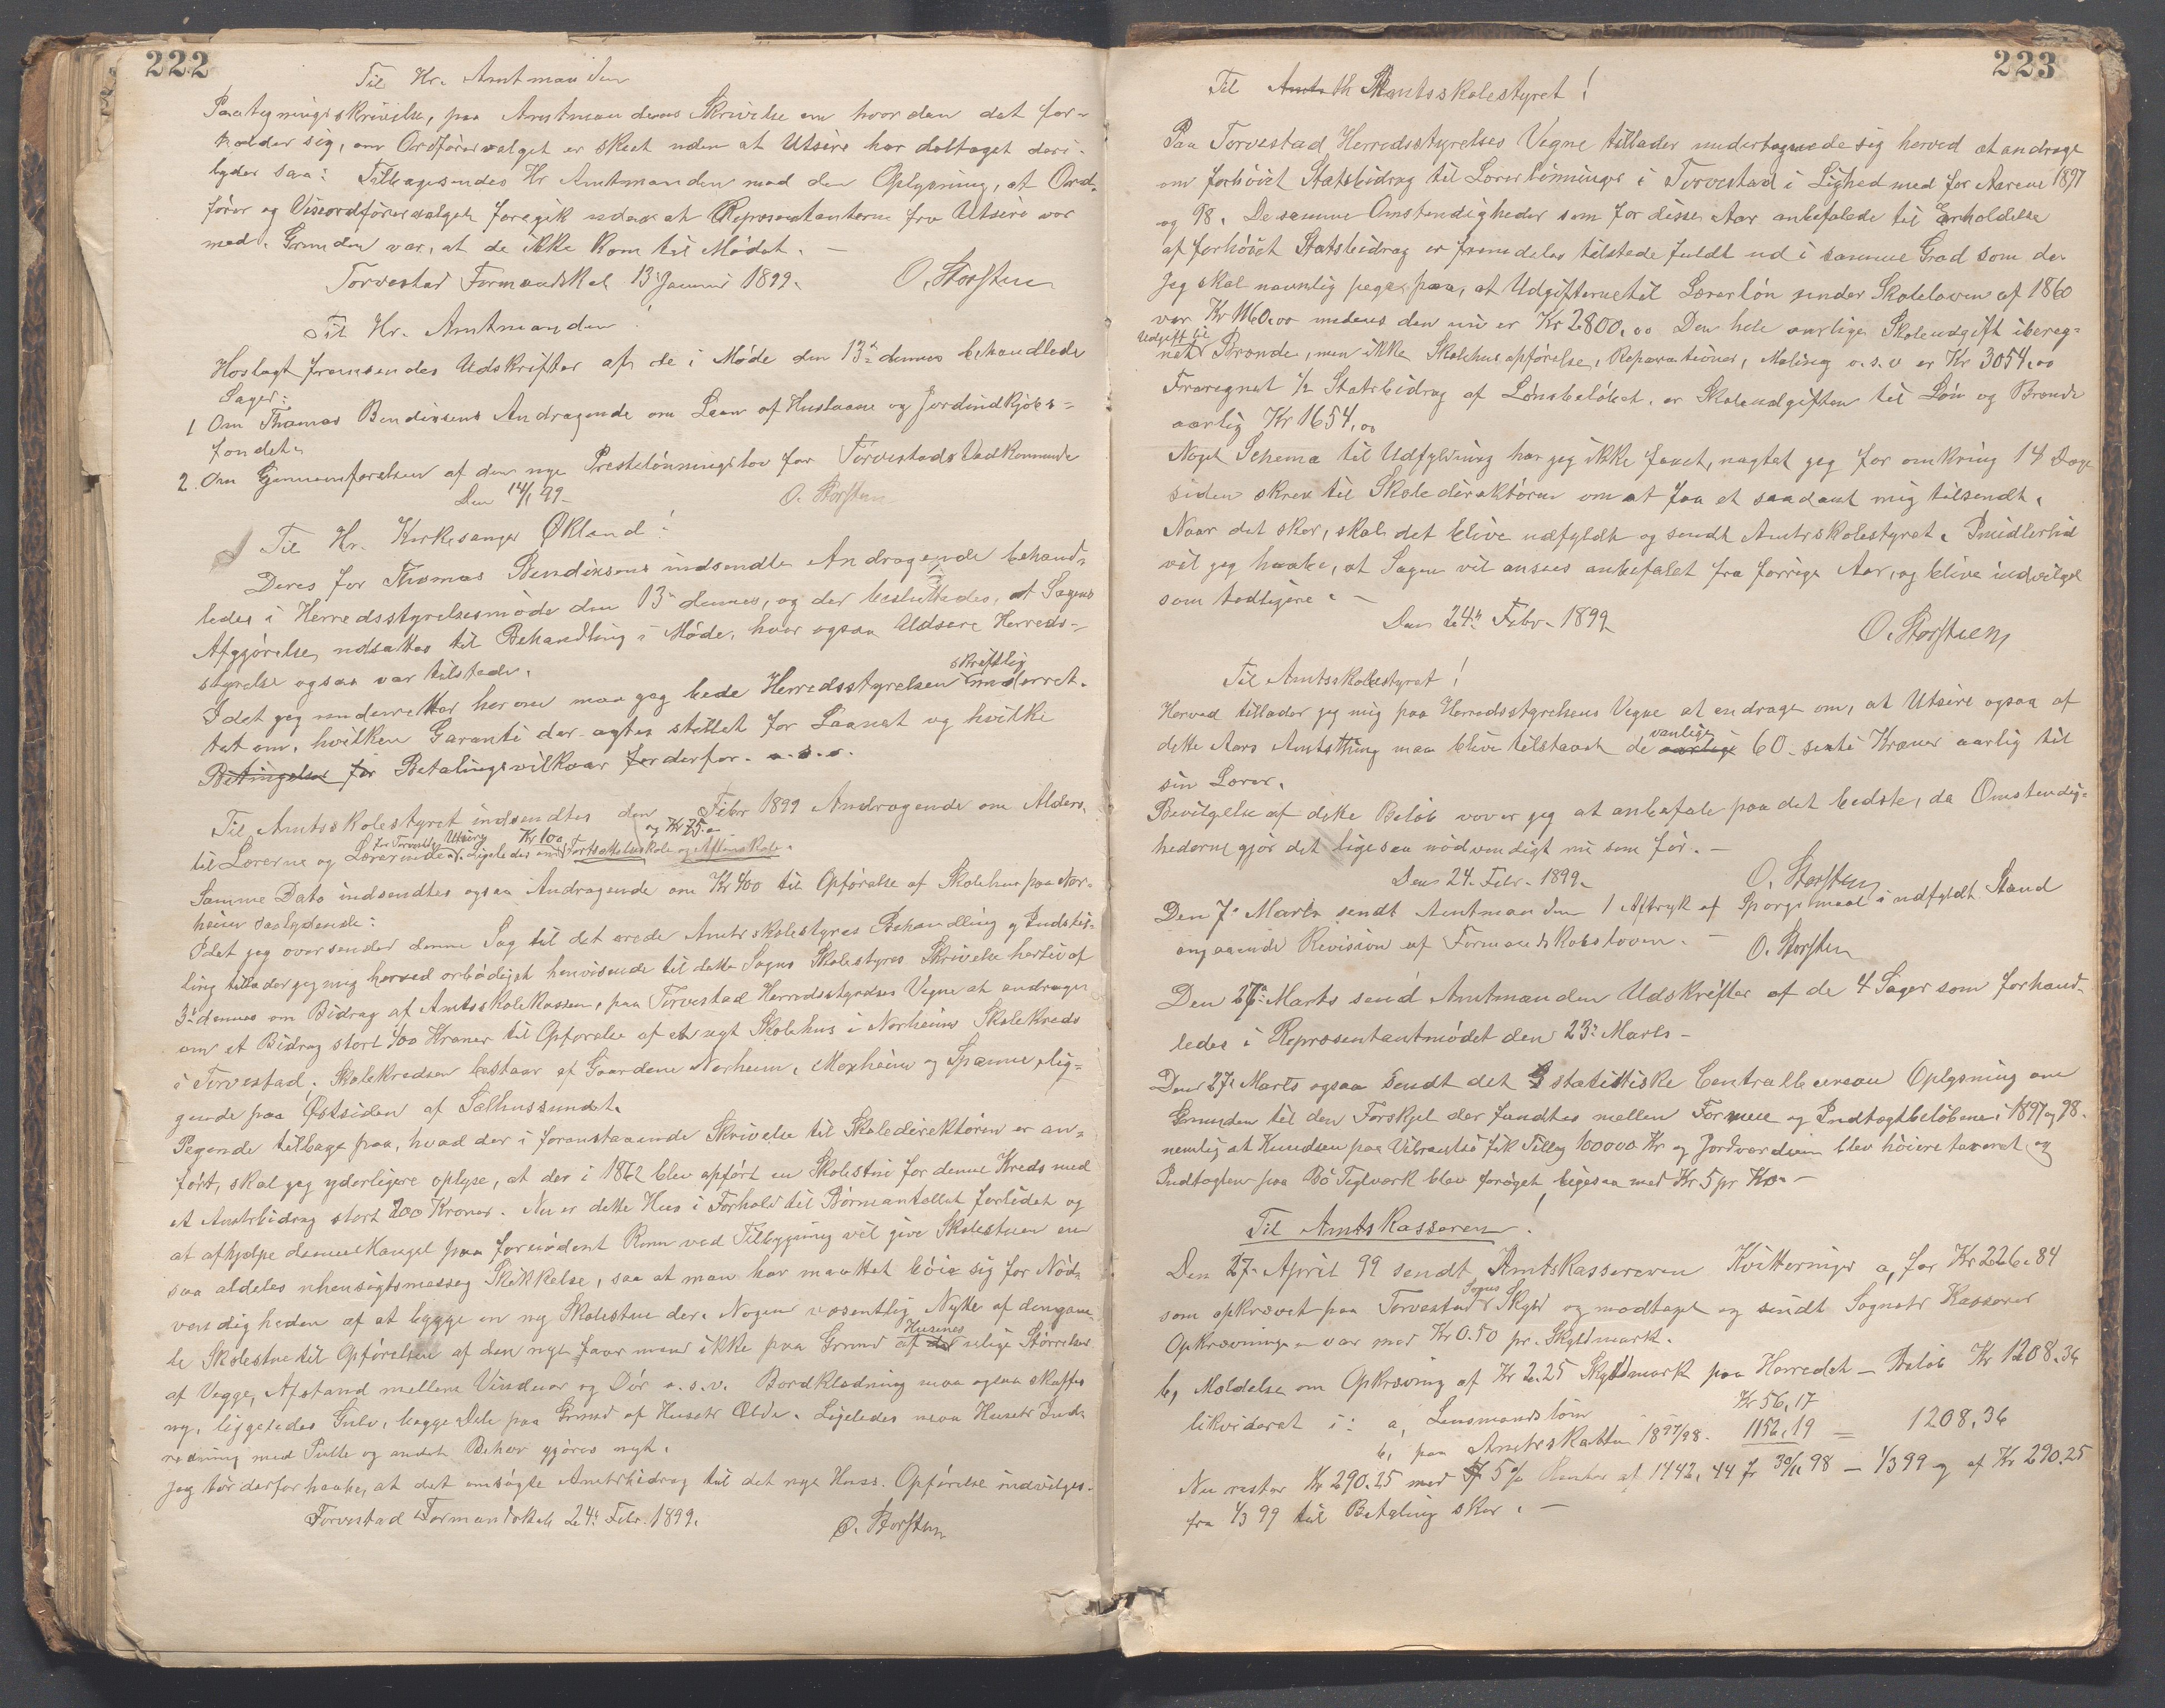 222
Til Hr. Amtmanden
Paategningsskrivelse, paa Amtmandens Skrivelse om hvordan det for-
holder sig, om Ordförervalget er skeet uden at Utsire har deltaget deri.
lyder saa: Tilbagesendes Hr Amtmanden med den Oplysning, at Ord-
förer og Viseordförervalget foregik uden at Repræsentanterne fra Utsire var
med. Grunden var, at de ikke kom til Mödet. —
Torvestad Formandskab 13 Januar 1899. O. Storsteen
Til Hr. Amtmanden!
Hoslagt fremsendes Udskrifter af de i Möde den 13de dennes behandlede
Sager:
1 Om Thomas Bendixsens Andragende om Laan af Huslaane og Jordindkjöbs-
fondet.
2. Om Gjennemförelsen af den nye Prestelönningslov for Torvestads Vedkommende
Den 14/1 99. O. Storsteen
Til Hr. Kirkesanger Økland!
Deres for Thomas Bendiksens indsendte Andragende behand-
ledes i Herredsstyrelsesmöde den 13de dennes, og der besluttedes, at Sagens
Afgjörelse udsattes til Behandling i Möde, hvor ogsaa Uldsere Herreds-
styrelse ogsaa var tilstede.
Idet jeg underretter herom maa jeg bede Herredsstyrelsen skriftlig underret-
tet om, hvilken Garanti der agtes stillet for Laanet og hvilke
Betingelser for Betalingsvilkaar for derfor. o.s.v.
Til Amtsskolestyret indsendtes den Febr 1899 Andragende om Alders.
til Lærerne og Lærerinde for Torvestad Utsire Kr 100 og Kr 25.00. Ligeledes om Fortsættelsesskole og Aftenskole.
Samme Dato indsendtes ogsaa Andragende om Kr 400 til Opförelse af Skolehus paa Nor-
heim saalydende:
Idet jeg oversender denne Sag til det ærede Amtsskolestyres Behandling og Indstil-
ling tillader jeg mig herved ærbödigst henvisende til dette Sogns Skolestyres Skrivelse hertil af
3de dennes om Bidrag af Amtsskolekassen, paa Torvestad Herredsstyrelses Vegne at andrage
om et Bidrag stort 400 Kroner til Opförelse af et nyt Skolehus i Norheims Skolekreds
i Torvestad. Skolekredsen bestaar af Gaardene Norheim, Moxheim og Spanne, lig-
gende paa Østsiden af Salhussundet.
Pegende tilbage paa, hvad der i foranstaaende Skrivelse til Skoledirektören er an-
fört, skal jeg yderligere oplyse, at der i 1862 blev opfört en Skolestue for denne Kreds med
et Amtsbidrag stort 200 Kroner. Nu er dette Hus i Forhold til Börneantallet forlidet og
at afhjelpe denne Mangel paa fornödent Rum ved Tilbygning vil give Skolestuen en
saa aldeles uhensigtsmæssig Skikkelse, saa at man har maattet böie sig for Nöd-
vendigheden af at bygge en ny Skolestue der. Nogen væsentlig Nytte af den gam-
le Skolestue til Opförelsen af den nye faar man ikke paa Grund af Husenes ulige Störrelse
af Vægge, Afstand mellem Vinduer og Dör o.s.v. Bordklædning maa ogsaa skaffes
ny, liggeledes Gulv, begge Dele paa Grund af Husets Ælde. Ligeledes maa Husets Ind-
redning med Pulte og andet Behov gjöres nyt.
Jeg tör derfor haabe, at det omsögte Amtsbidrag til det nye Huss. Opförelse indvilges.
Torvestad Formandskab 24de Febr. 1899. O. Storsteen
223
Til Amtsskolestyret!
Paa Torvestad Herredsstyrelses Vegne tillader undertegnede sig herved at andrage
om forhöiet Statsbidrag til Lærerlönninger i Torvestad i Lighed med for Aarene 1897
og 98. De samme Omstendigheder som for disse Aar anbefalede til Erholdelse
af forhöiet Statsbidrag er fremdeles tilstede fuldt ud i samme Grad som da.
Jeg skal navnlig pege paa, at Udgifterne til Lærerlön under Skoleloven af 1860
var Kr 1160.00 medens den nu er Kr 2800.00 Den hele aarlige Skoleudgift ibereg-
net Udgift til Brænde, men ikke Skolehusopförelse, Reparationer, Maling o.s.v er Kr 3054.00
Fraregnet 1/2 Statsbidrag af Lönsbelöbet, er Skoleudgiften til Lön og Brænde
aarlig Kr 1654.00
Noget Schema til Udfyldning har jeg ikke faaet, uagtet jeg for omkring 14 Dage
siden skrev til Skoledirektören om at faa et saadant mig tilsendt.
Naar det sker, skal det blive udfyldt og sendt Amtsskolestyret. Imidlertid
vil jeg haabe, at Sagen vil ansees anbefalet fra forrige Aar, og blive indvilget
som tidligere. —
Den 24de Febr. 1899 O. Storsteen
Til Amtsskolestyret!
Herved tillader jeg mig paa Herredsstyrelsens Vegne at andrage om, at Utsire ogsaa af
dette Aars Amtsthing maa blive tilstaaet de aarlige vanlige 60 – sexti Kroner aarlig til
sin Lærer.
Bevilgelse af dette Belöb vover jeg at anbefale paa det bedste, da Omstendig-
hederne gjör det ligesaa nödvendigt nu som för. —
Den 24. Febr. 1899. O. Storsteen
Den 7de Marts sendt Amtmanden 1 Aftryk af Spörgsmaal i udfyldt Stand
angaaende Revision af Formandskabsloven. — O. Storsteen
Den 27de Marts send Amtmanden Udskrifter af de 4 Sager som forhand-
ledes i Repræsentantmödet den 23de Marts —
Den 27de Marts ogsaa sendt det statistiske Centralbureau Oplysning om
Grunden til den Forskjel der fandtes mellem Formue og Indtægtbelöbene i 1897 og 98.
nemlig at Knudsen paa Vibrandsö fik Tillæg 100000 Kr og Jordværdien blev höiere taxeret og
Indtægten paa Bö Teglværk blev foröget ligesaa med Kr 5 pr Kr. —
Til Amtskassereren!
Den 27. April 99 sendt Amtskassereren Kvitteringer a, for Kr 226.84
som opkrævet paa Torvestad Sogns Skyld og modtaget og sendt Sognets Kasserer
Opkrævningen var med Kr 0.50 pr. Skyldmark.
b, Meldelse om Opkræving af Kr 2.25 Skyldmark paa Herredet — Belöb Kr 1208.36
likvideret i: a, Lensmandslön Kr 56,17
b, paa Amtsskatten 1897/98. 1152,19 = 1208,36
Nu rester Kr 290.25 med 5% Renter af 1442,44 fr 30/11 98 – 1/3 99 og af Kr 290.25
fra 1/3 99 til Betaling sker. —